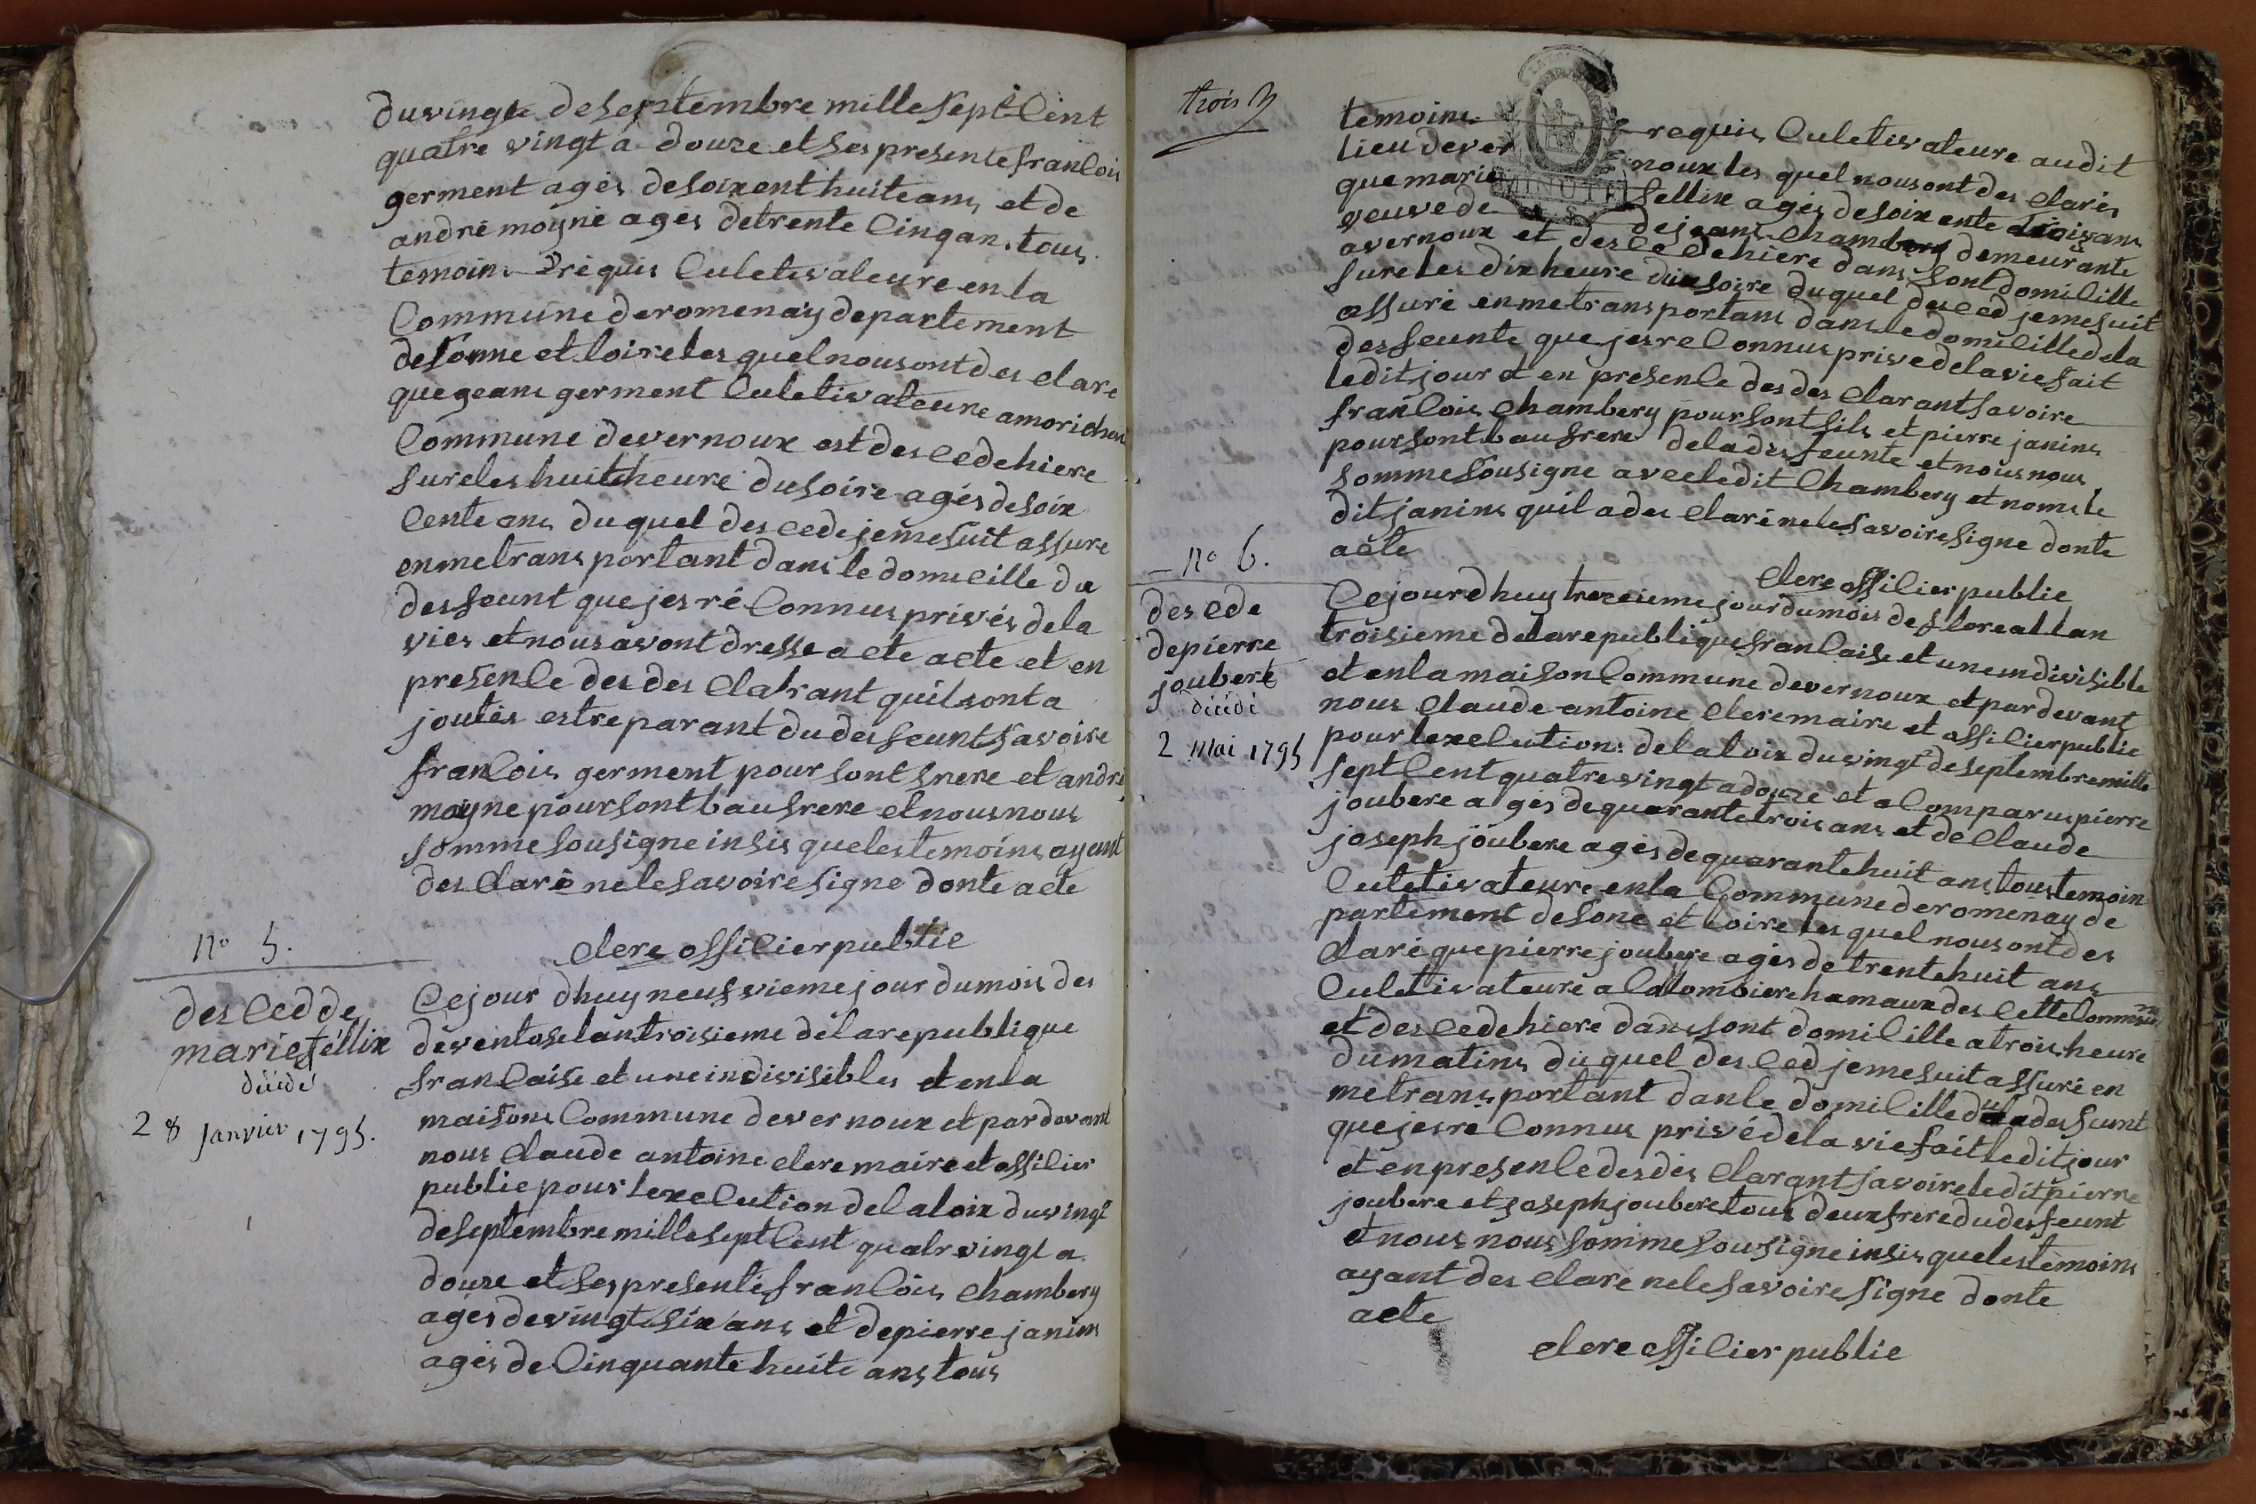 du vingte de septembre mille sept Cent
quatre vingt a douze et ses presente franCois
germent agés de soixent huite ans et de
andré moyne agés de trente Cinq ans tous
temoins réquis Culetivateure en la
Commune de romenay departement
de sonne et loire les quel nous ont des claré
que geans germent Culetivateure a morichon
Commune de vernoux est des Cede hiere
sure les huit heure du soire agés de soix
cente ans du quel des cede je me suit assure
en me trans portant dans le domicille du
des feunt que jes ré Connus privés de la
vies et nous avont dresse acte acte et en
presenCe des des Clarant quil sont a
joutés estre parant du des feunt savoire
franCois germent pour sont frere et andré
moyne pour sont bau frere et nous nous
somme sousigne insis que les temoins ayant
des Claré ne le savoire signe donte acte
Clere offiCier publie
n° 5.
des Ced de
marie féllix
décédé
28 janvier 1795.
Ce jour dhuy neuf vieme jour du mois des
de ventose lan troisieme de la republique
franCaise et une indivisibles et en la
maisons Commune de vernoux et par devant
nous Claude antoine clere maire et offiCier
publie pour lexeCution de la loix du vingt
de septembre mille sept Cent quatr vingt a
douze et ses presenté franCois Chambery
agés de vingt six ans et de pierre janins
agés de Cinquante huite ans tous
trois 3
temoins requis Culetivateure au dit
lieu de ver noux les quel nous ont des Clarés
MINUTE
que marie fellix agés de soix ente trois ans
veuve de de jeans Chambery demeurante
a vernoux et des Ce de hiere dans sont domiCille
sure les dix heure du soire du quel des Ced je me suit
assuré en me trans portans dans le domiCille de la
des feunte que jes re Connus prive de la vie fait
le dit jour et en presenCe des des Clarant savoire
franCois Chambery pour sont fils et pierre janins
pour sont bau frere de la des feunte et nous nous
somme sousigne avec le dit Chambery et nom le
dit janins quil a des Claré ne le savoire signe donte
acte
Clere offiCier publie
n° 6.
des Cede
de pierre
joubert
décédé
2 Mai 1795
Ce jour dhuy trezeieme jour du mois de floreal lan
troisieme de la republique franCaise et une indivisible
et en la maison Commune de vernoux et par devant
nous Claude antoine clere maire et offiCier publie
pour lexeCution de la loix du vingt de septembre mille
sept Cent quatre vingt a douze et a Comparus pierre
joubere agés de quarante trois ans et de Claude
joseph joubere agés de quarante huit ans tous temoin
Culetivateure en la Commune de romenay de
partement de sone et loire les quel nous ont des
Claré que pierre joubere agés de trente huit ans
Culetivateure a Calombiere hamaux des Cette Commune
et des Cede hiere dans sont domiCille a trois heure
du matins du quel des Ced je me suit assuré en
me trans portant dan le domiCille du des funt
que jes ré Connus privé de la vie fait le dit jour
et en presenCe des dés Clarant savoire le dit pierre
joubere et joseph joubere tous deux frere du des feunt
et nous nous somme sousigne insis que les temoins
ayant des Claré ne le savoire signe donte
acte
clere offiCier publie